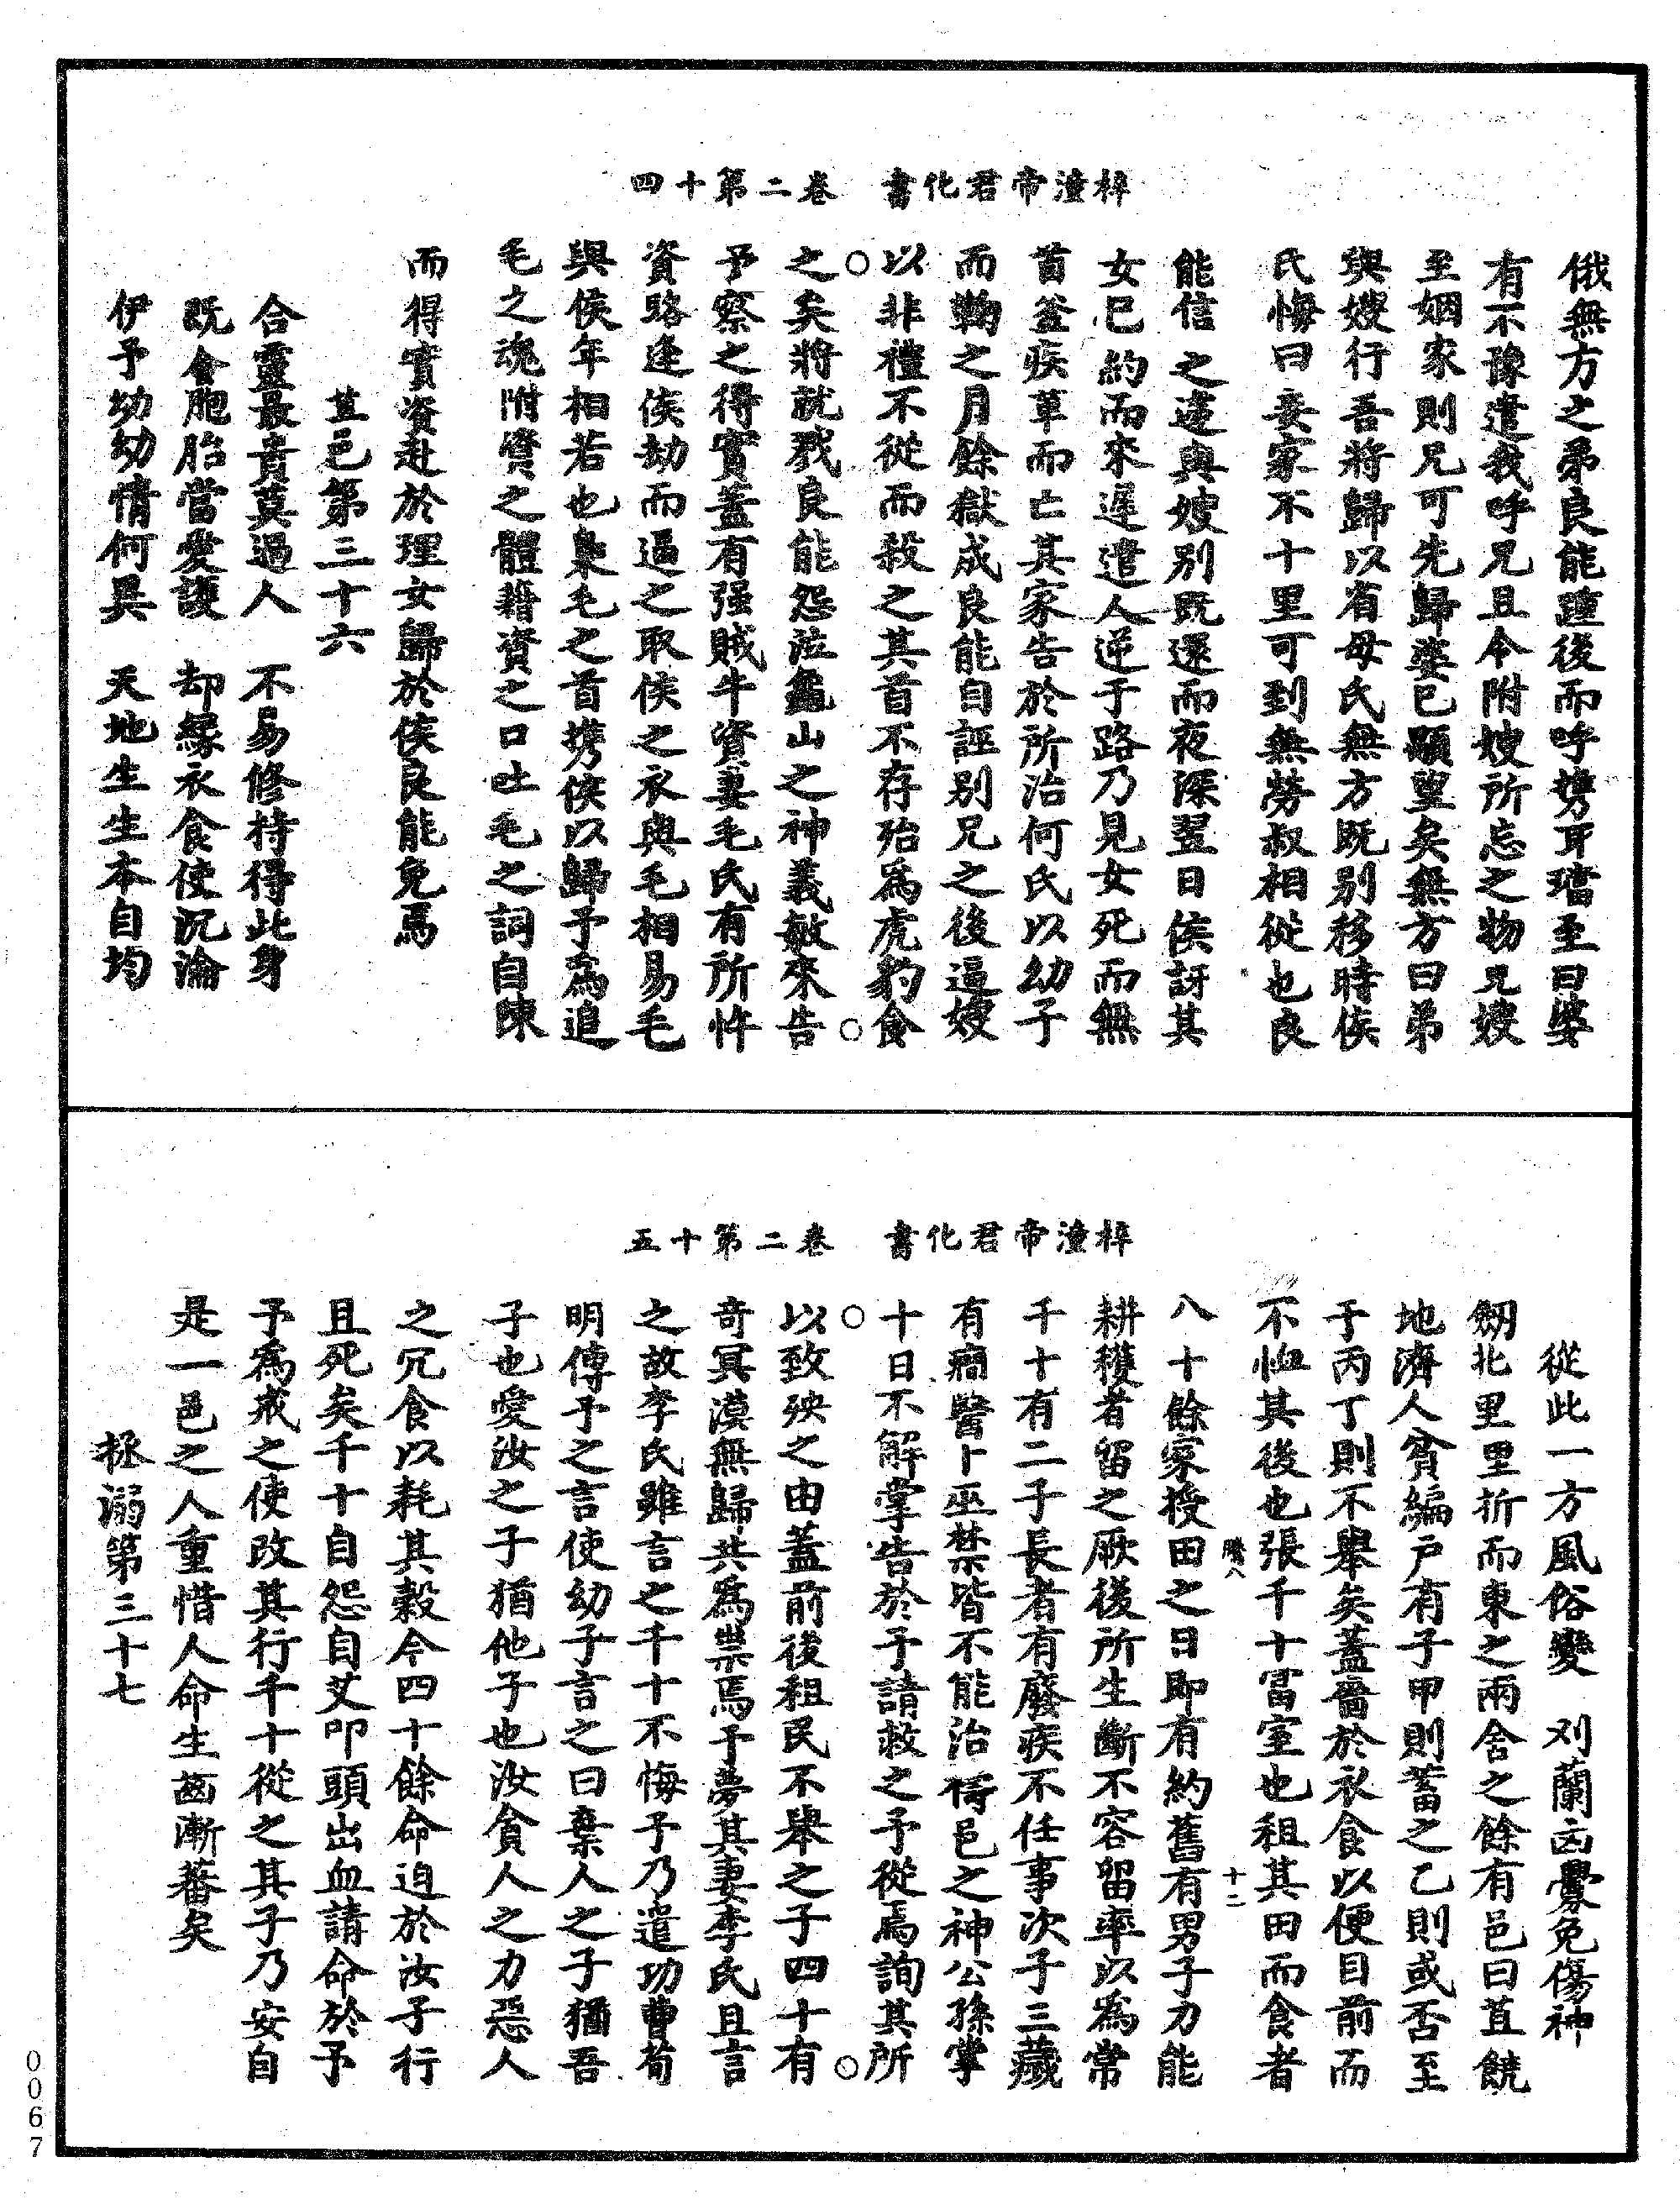 梓潼帝君化書　卷二第十四
俄無方之弟良能踵後而呼携耳璫至曰婆
有不豫遣我呼兄且令附嫂所忘之物兄嫂
至姻家則兄可先歸婆已顒望矣無方曰弟
與嫂行吾將歸以省母氏無方既别移時侯
氏悔曰妾家不十里可到無勞叔相從也良
能信之遂與嫂别既還而夜深翌日侯訝其
女已約而來遲遣人逆于路乃見女死而無
首釜疾革而亡其家告於所治何氏以幼子
而鞫之月餘獄成良能自誣别兄之後逼嫂
以非禮不從而殺之其首不存殆爲虎豹食
之矣將就戮良能怨泣龜山之神義敏來告
予察之得實蓋有强賊牛資妻毛氏有所忤
資路逢侯劫而逼之取侯之衣與毛相易毛
與侯年相若也梟毛之首携侯以歸予爲追
毛之魂附資之體藉資之口吐毛之詞自陳
而得實資赴於理女歸於侯良能免焉
苴邑第三十六
合靈最貴莫過人　不易修持得此身
既會胞胎當愛護　却緣衣食使沉淪
伊予幼幼情何異　天地生生本自均
梓潼帝君化書　卷二第十五
從此一方風俗變　刈蘭凶釁免傷神
劒北里里折而東之兩舍之餘有邑曰苴饒
地濟人貧編户有子甲則蓄之乙則或否至
于丙丁則不舉矣蓋嗇於衣食以便目前而
不恤其後也張千十冨室也租其田而食者
騰八　十二
八十餘家授田之日即有約舊有男子力能
耕穫者留之厥後所生斷不容留率以爲常
千十有二子長者有廢疾不任事次子三藏
有癇醫卜巫禁皆不能治禱邑之神公孫掌
十日不解掌告於予請救之予從焉詢其所
以致殃之由蓋前後租民不舉之子四十有
奇冥漠無歸共爲祟焉予夢其妻李氏且言
之故李氏雖言之千十不悔予乃遣功曹荀
明傳予之言使幼子言之曰棄人之子猶吾
子也愛汝之子猶他子也汝貪人之力惡人
之冗食以耗其榖今四十餘命迫於汝子行
且死矣千十自怨自艾叩頭出血請命於予
予爲戒之使改其行千十從之其子乃安自
是一邑之人重惜人命生齒漸蕃矣
拯溺第三十七
0067